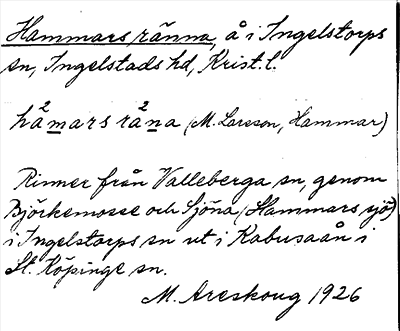 Hammars ränna, å i Ingelstorps
sn, Ingelstads hd, Krist. l.
hamars räna (M. Larsson, Hammar)
Rinner från Valleberga sn, genom
Björkemosse och Sjöna (Hammars sjö)
i Ingelstorps sn ut i Kabusaån i
St. Köpinge sn.
M. Areskoug 1926